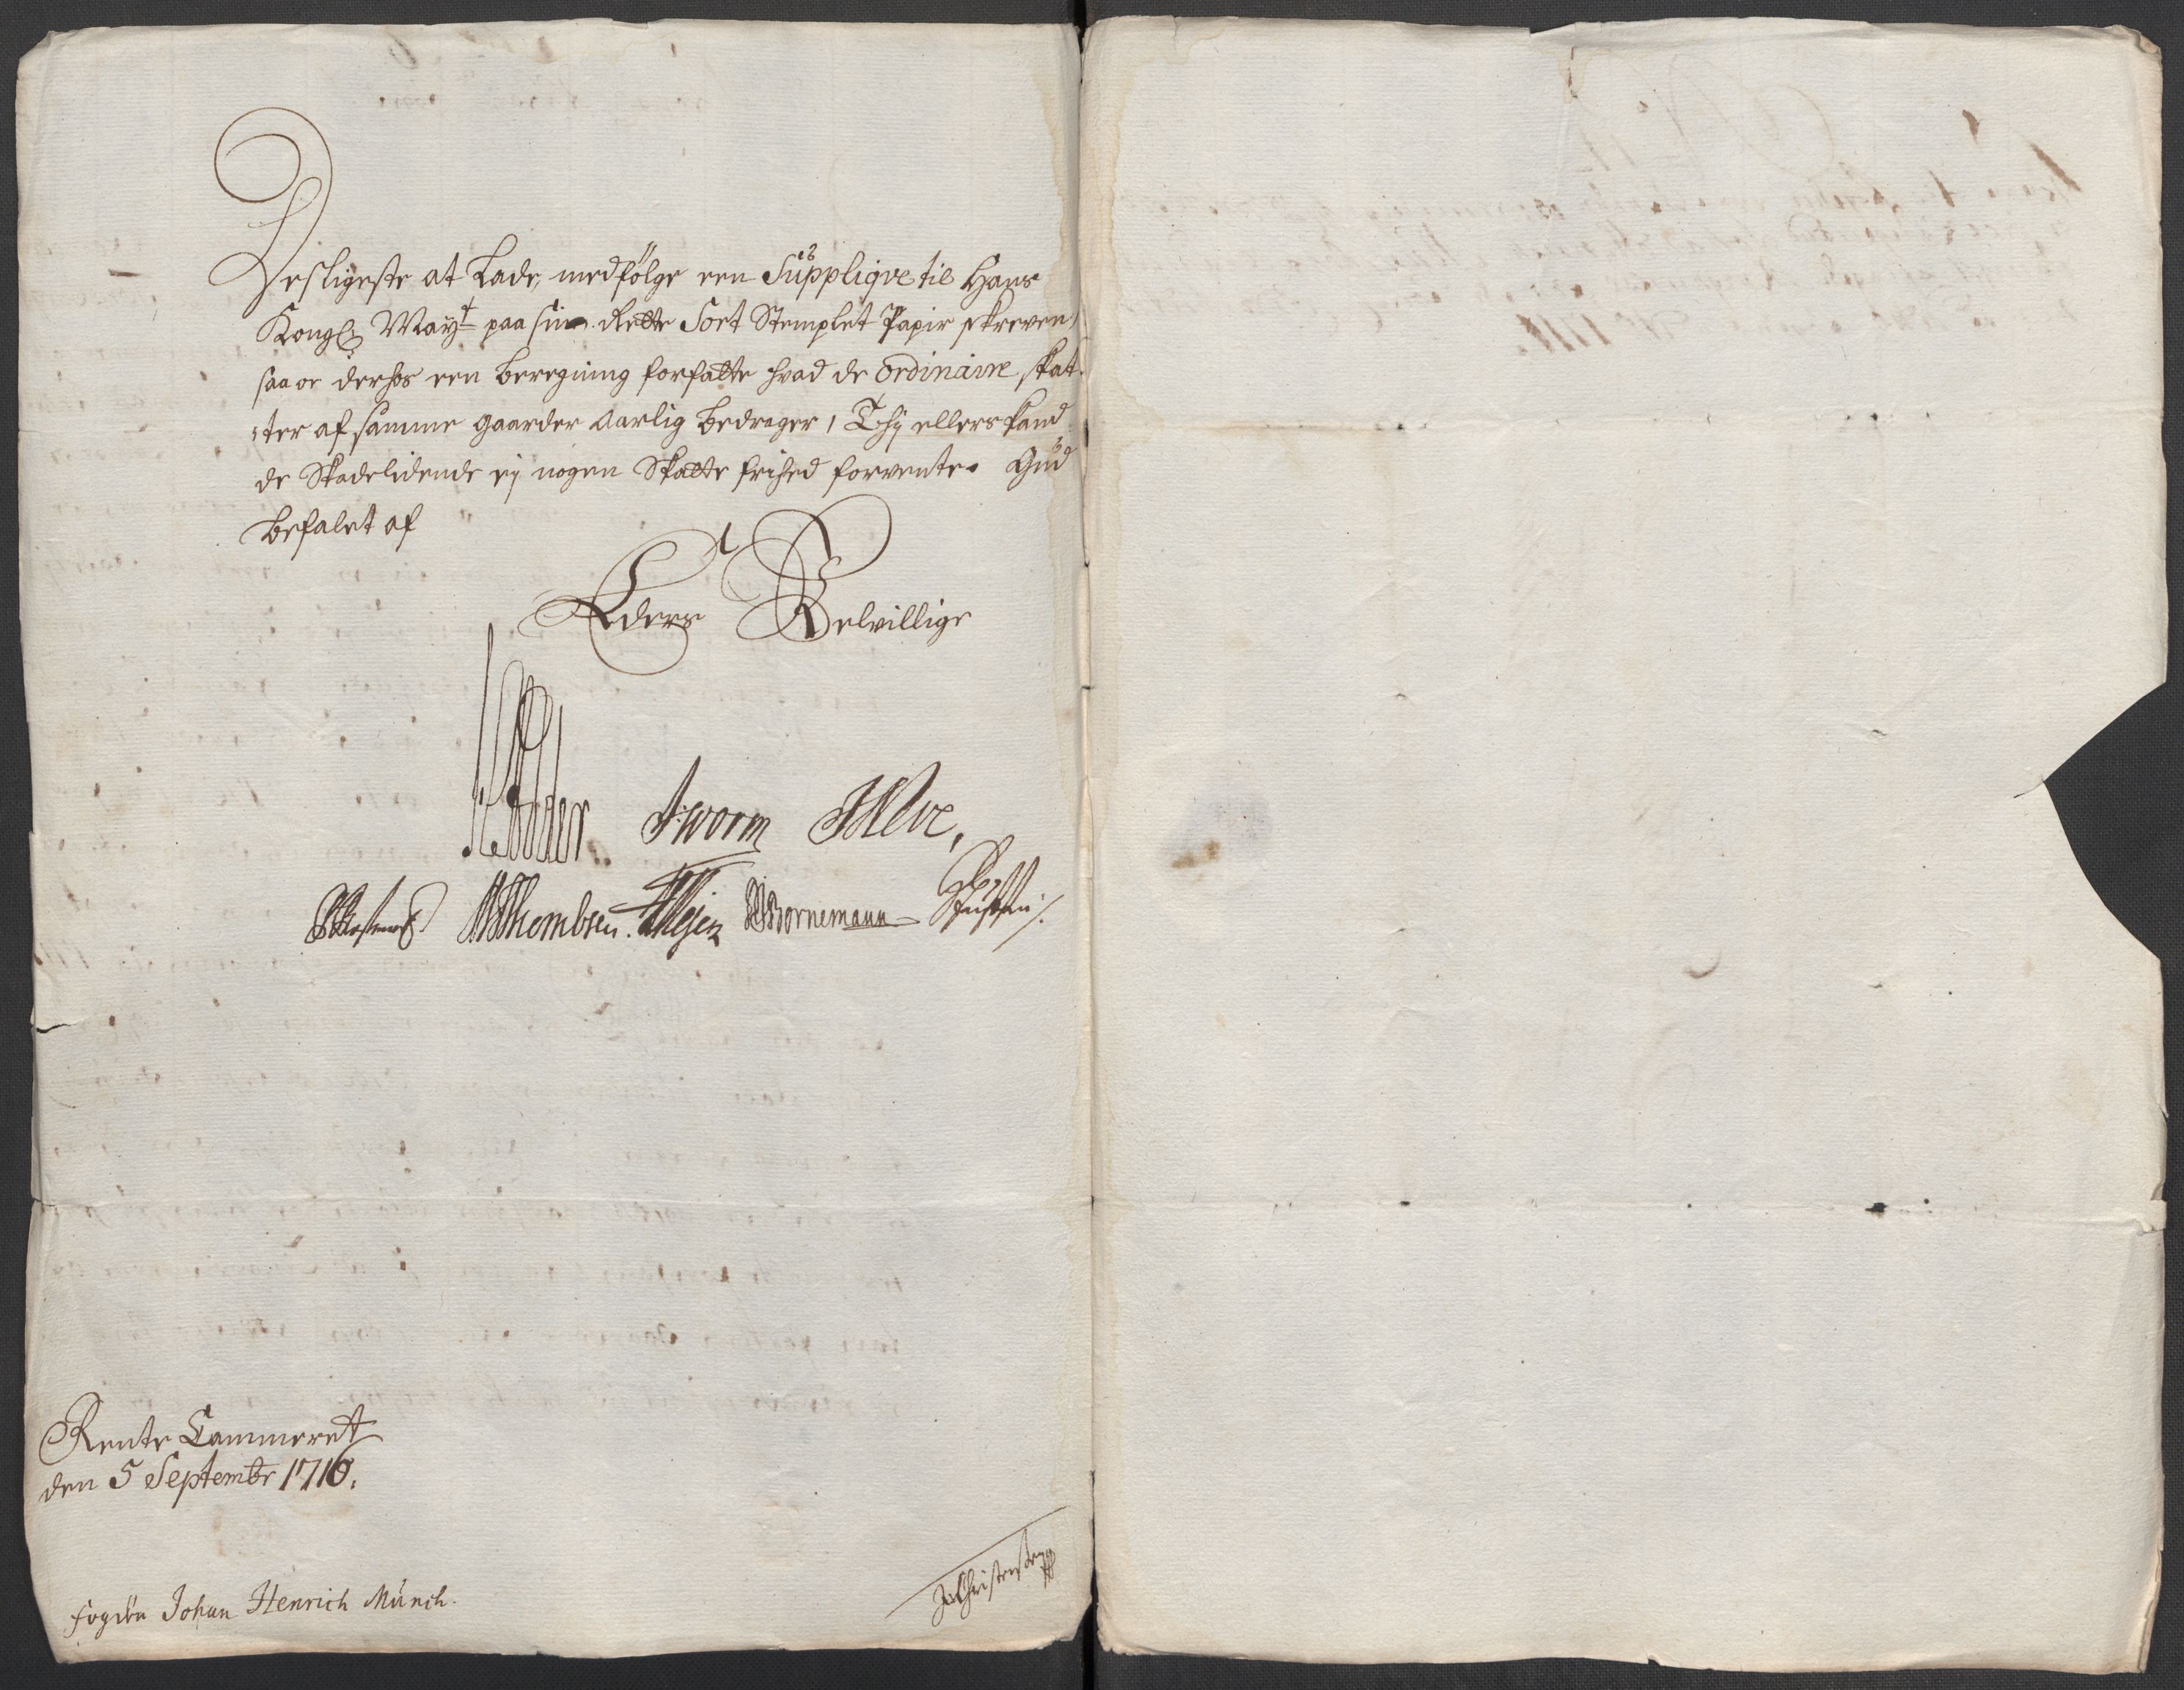 Desligeste at Lade, medfölge een Suppliqve til Hans
Kongl Mayt paa sin Rette Sort Stemplet Papir skreven,
saa oc derhos een beregning forfatte hvad de ordinaire skat
ter af samme gaarder aarlig bedrager, Thj ellers kand
de Skadelidende ej nogen Skatte frihed forvente. Gud
befalet af
Eders Velvillige
J Worm
Thombsen Bornemann
Rente Cammeret
den 5 Septembr 1716.
Fogden Johan Henrich Münch.
Christensen